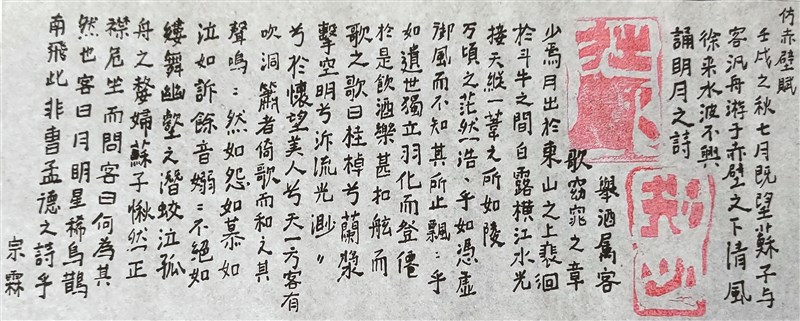 仿赤壁賦
壬戌之秋七月既望蘇子与
客汎舟游于赤壁之下清風
徐来水波不興
舉酒属客
誦明月之詩
歌窈窕之章
少焉月出於東山之上裴徊
於斗牛之間白露横江水光
接天縦一葦之所如陵
万頃之茫然浩〻乎如憑虚
御風而不知其所止飄〻乎
如遺世獨立羽化而登僊
於是飲酒樂甚扣舷而
歌之歌曰桂棹兮蘭漿
擊空明兮泝流光渺〃
兮於懷望美人兮天一方客有
吹洞簫者倚歌而和之其
聲鳴〻然如怨如慕如
泣如訴餘音嫋〻不絕如
縷舞幽壑之潛蛟泣孤
舟之嫠婦蘇子愀然正
襟危坐而問客曰何為其
然也客曰月明星稀烏鵲
南飛此非曹孟德之詩乎
宗霖